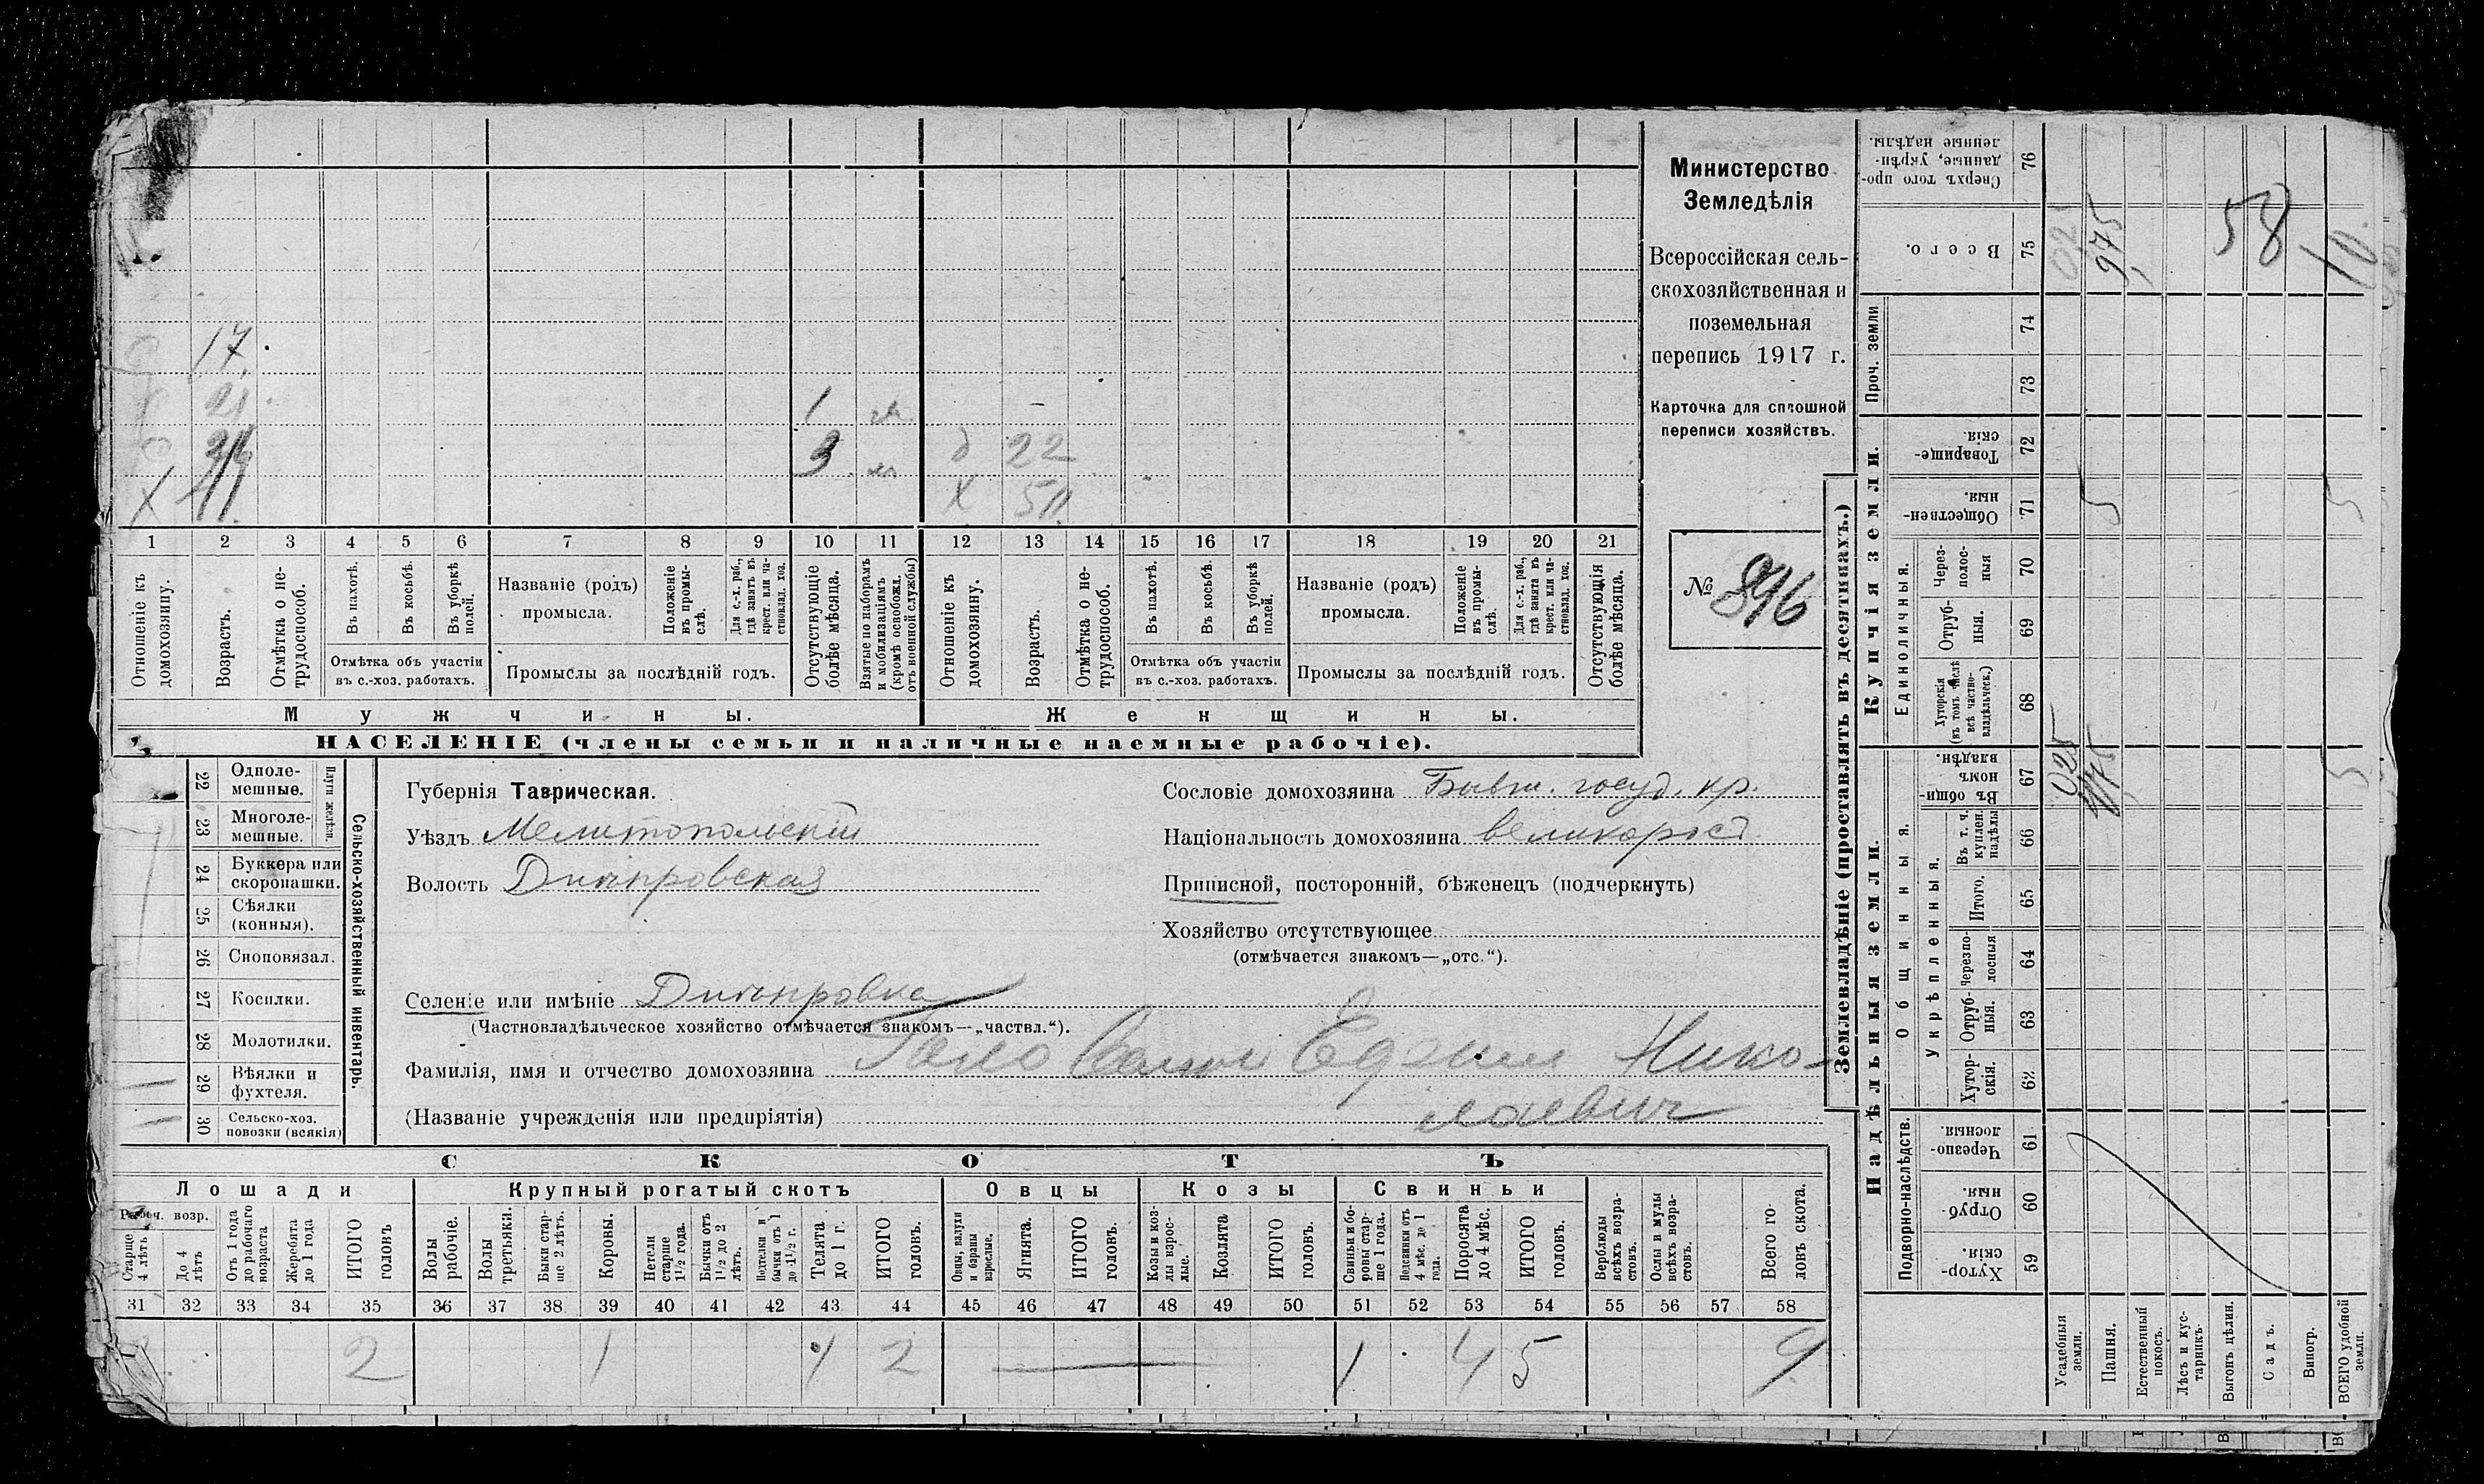 17.
21
1 м
3 м д 22
Х Х 50
1 2 3 4 5 6 7 8 9 10 11 12 13 14 15 16 17 18 19 20 21
Отношеніе къ домохозяину.
Возрастъ.
Отмѣтка о не-трудоспособ.
Въ пахотѣ.
Въ косьбѣ.
Въ уборкѣ полей.
Отмѣтка объ участіи въ с.-хоз. работахъ.
Названіе (родъ) промысла.
Положеніе въ промы-слѣ.
Для с.-х. раб., гдѣ занятъ въ крест. или ча-стновлад. хоз.
Промыслы за послѣдній годъ.
Отсутствующіе болѣе мѣсяца.
Взятые по наборамъ и мобилизаціямъ (кромѣ освобожд. отъ военной службы)
Отношеніе къ домохозяину.
Возрастъ.
Отмѣтка о не-трудоспособ.
Въ пахотѣ.
Въ косьбѣ.
Въ уборкѣ полей.
Отмѣтка объ участіи въ с.-хоз. работахъ.
Названіе (родъ) промысла.
Положеніе въ промы-слѣ.
Для с.-х. раб., гдѣ занятъ въ крест. или ча-стновлад. хоз.
Промыслы за послѣдній годъ.
Отсутствующія болѣе мѣсяца.
Мужчины. Женщины.
НАСЕЛЕНІЕ (члены семьи и наличные наемные рабочіе).
Министерство
Земледѣлія
Всероссійская сель-
скохозяйственная и
поземельная
перепись 1917 г.
Карточка для сплошной
переписи хозяйствъ.
№ 896
22 Одноле-мешные.
23 Многоле-мешные.
Плуги желѣзн.
24 Буккера или скоропашки.
25 Сѣялки (конныя).
26 Сноповязал.
27 Косилки.
28 Молотилки.
29 Вѣялки и фухтеля.
30 Сельско-хоз. повозки (всякія)
Сельско-хозяйственный инвентарь.
Губернія Таврическая.
Уѣздъ Мелитопольскій
Волость Днѣпровская
Селеніе или имѣніе Днѣпровка
(Частновладѣльческое хозяйство отмѣчается знакомъ—„частвл.“).
Сословіе домохозяина Бывш. госуд. кр.
Національность домохозяина великорос
Приписной, посторонній, бѣженецъ (подчеркнуть)
Хозяйство отсутствующее
(отмѣчается знакомъ—„отс.“).
Фамилія, имя и отчество домохозяина Нико-
(Названіе учрежденія или предпріятія) лаевич
СКОТЪ
Лошади Крупный рогатый скотъ Овцы Козы Свиньи
Рабоч. возр.
Старше 4 лѣтъ
До 4 лѣтъ
Отъ 1 года до рабочаго возраста
Жеребята до 1 года
ИТОГО головъ
Волы рабочіе.
Волы третьяки.
Быки стар-ше 2 лѣтъ.
Коровы.
Нетели старше 1½ года.
Бычки отъ 1½ до 2 лѣтъ.
Нетелки и бычки отъ 1 до 1½ г.
Телята до 1 г.
ИТОГО головъ.
Овцы, валухи и бараны взрослые.
Ягнята.
ИТОГО головъ.
Козы и коз-лы взрос-лые.
Козлята
ИТОГО головъ.
Свиньи и бо-ровы стар-ше 1 года.
Подсвинки отъ 4 мѣс. до 1 года.
Поросята до 4 мѣс.
ИТОГО головъ.
Верблюды всѣхъ возра-стовъ.
Ослы и мулы всѣхъ возра-стовъ.
Всего го-ловъ скота.
31 32 33 34 35 36 37 38 39 40 41 42 43 44 45 46 47 48 49 50 51 52 53 54 55 56 57 58
2 1 1 2 1 4 5 9
Землевладѣніе (проставлять въ десятинахъ.)
Надѣльныя земли. Купчія земли. Проч. земли
Подворно-наслѣдств. Общинныя. Единоличныя.
Укрѣпленныя.
59 Хутор-скія.
60 Отруб-ныя.
61 Черезпо-лосныя.
62 Хутор-скія.
63 Отруб-ныя.
64 Черезпо-лосныя
65 Итого.
66 Въ т. ч. куплен. надѣлы
67 Въ общи номъ владѣн.
68 Хуторскія (въ томъ числѣ всѣ частно-владѣльческ.)
69 Отруб-ныя.
70 Через-полос-ныя
71 Обществен-ныя.
72 Товарище-скія.
73
74
75 Всего.
76 Сверхъ того про-данные, укрѣп-ленные надѣлы.
Усадебныя земли.
Пашня.
Естественный покосъ.
Лѣсъ и кус-тарникъ.
Выгонъ цѣлин.
Садъ.
Виногр.
ВСЕГО удобной земли.
025
5
975
58
10
5
5